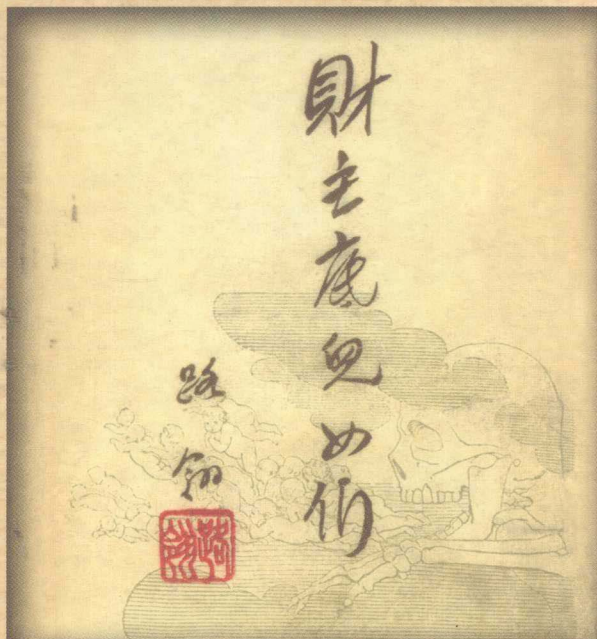 財主底兒女們
路翎
路翎